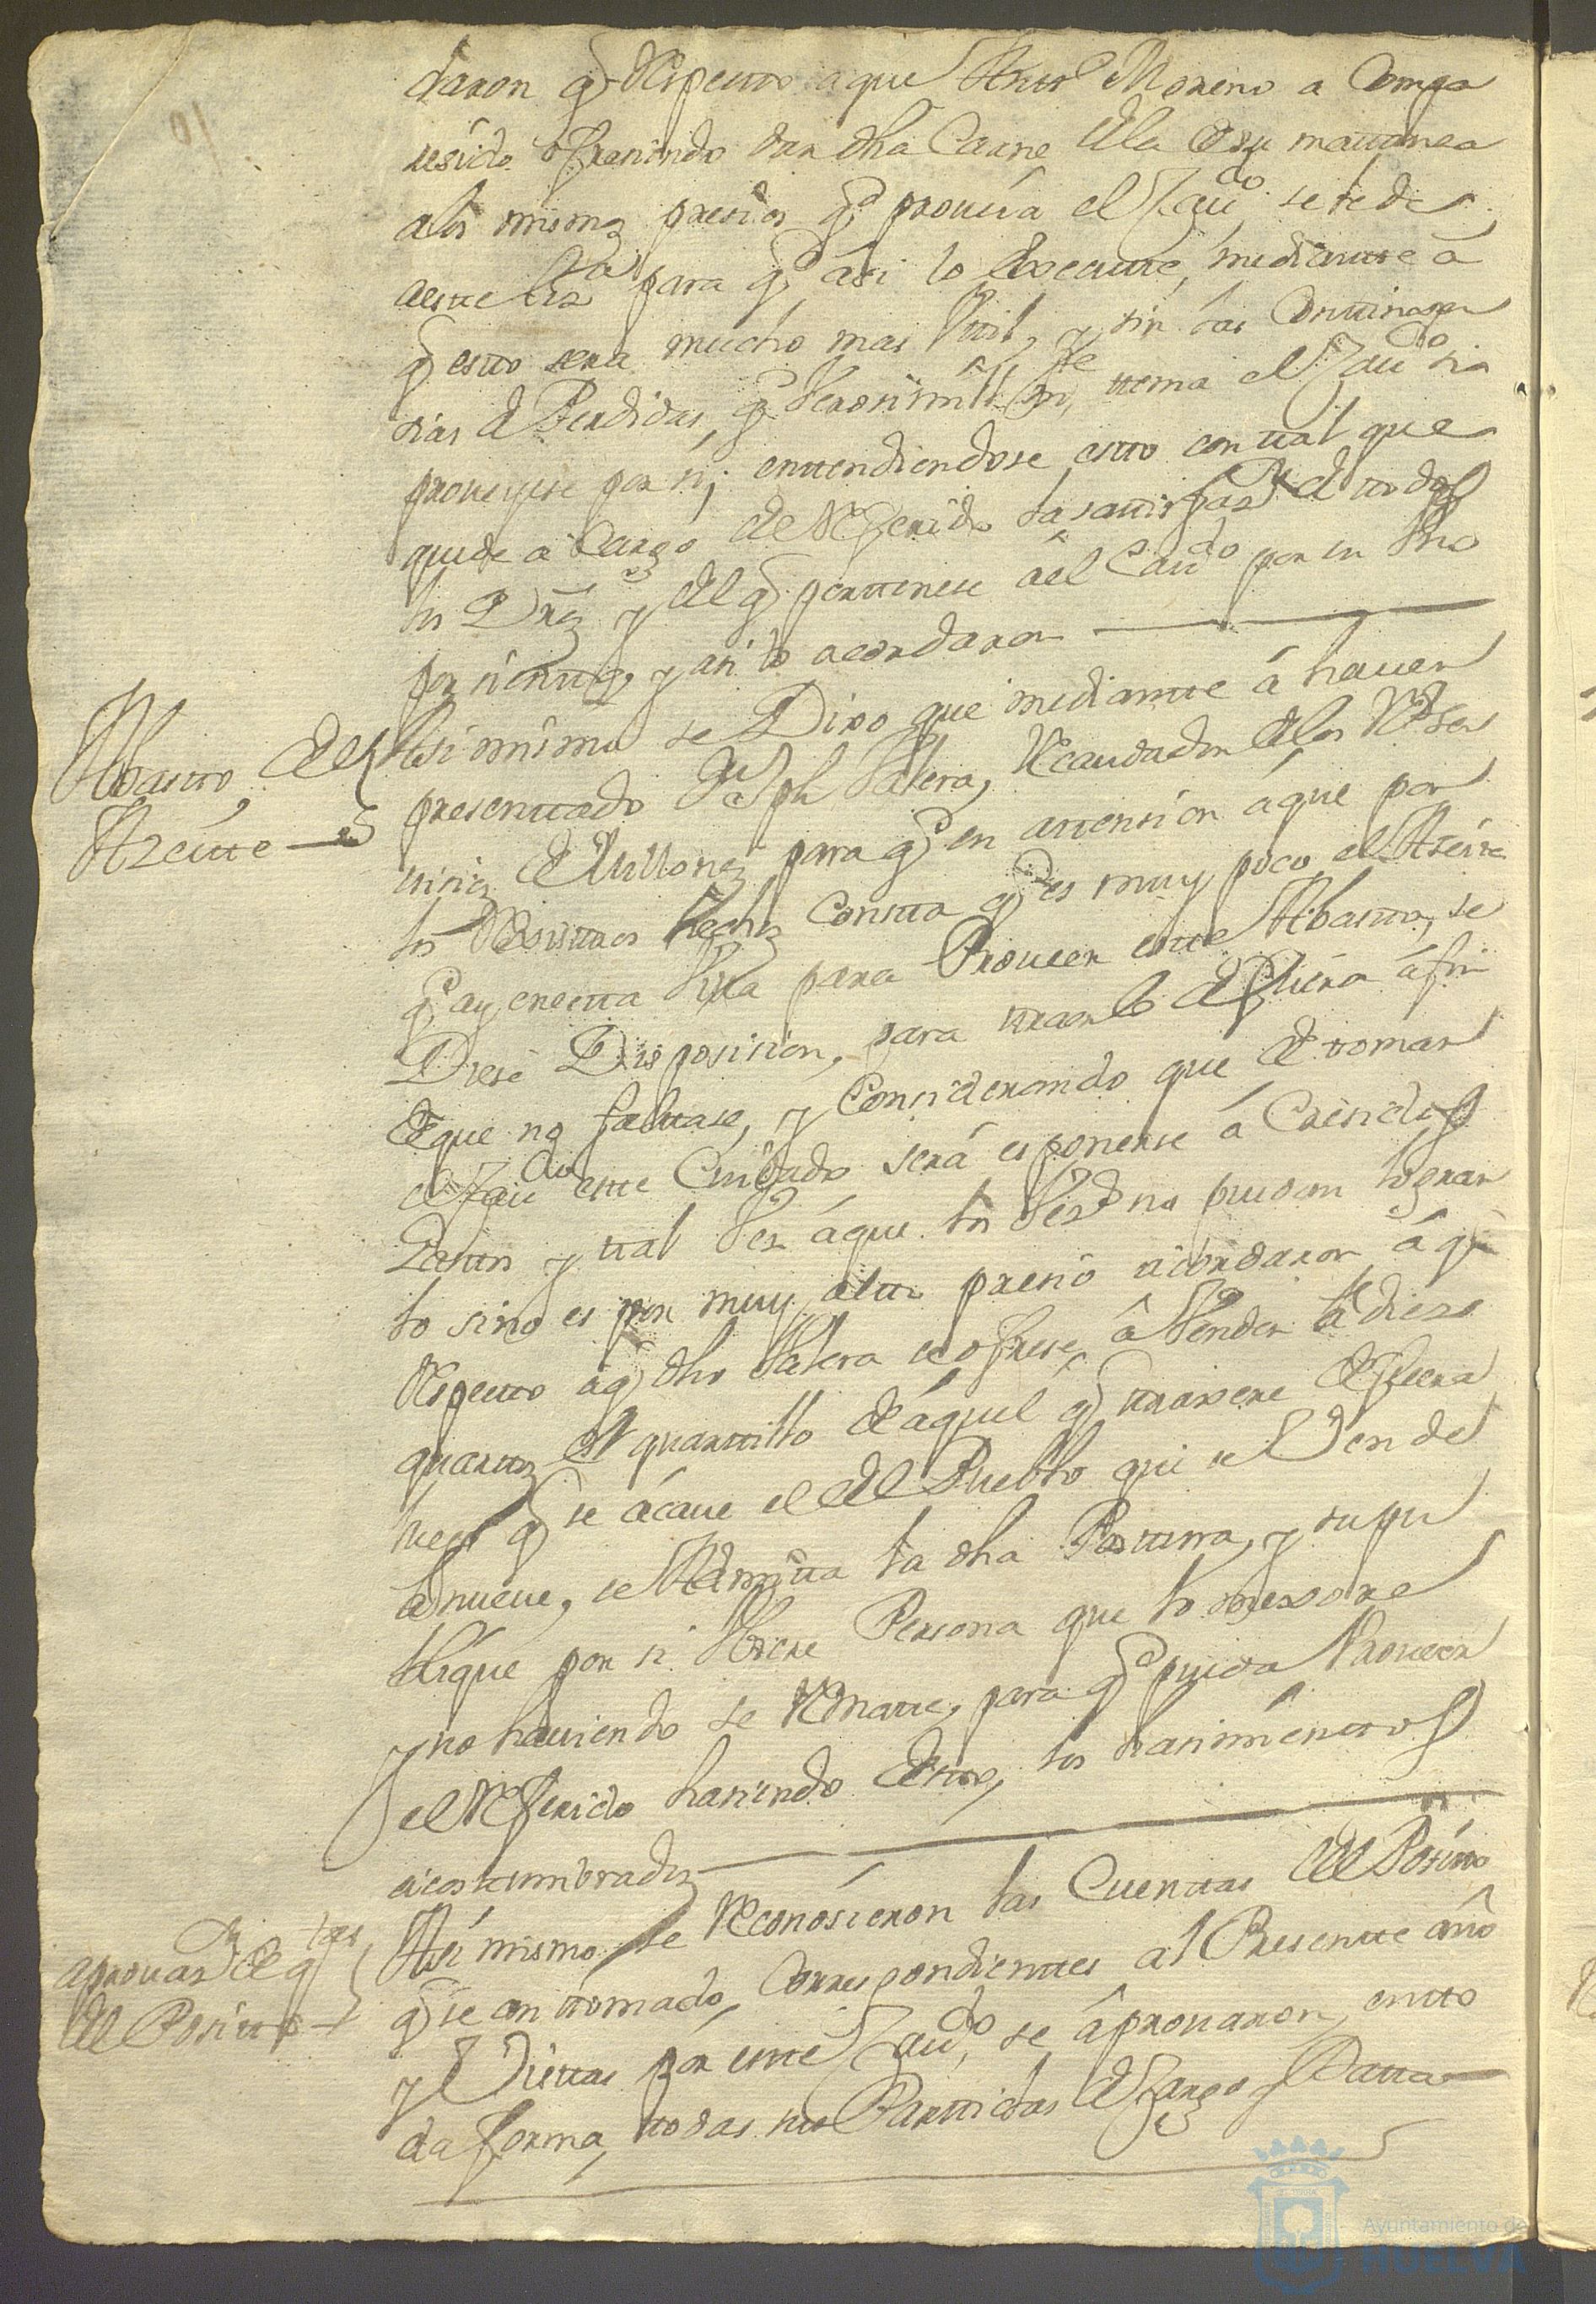 daron q Respecto a que Antt.º Moreno a Compa
resido ofresiendo dar dha Carne de la de su mattansa
a los mismos presios q.e proueia el Cau.do se le de
desde la para q.e asi lo Execute, mediante á
q esto sera mucho mas Vttil, y sin las Conttingen
sias de Perdidas, q.e Verosimilm.te ttema el Cau.do si la
proueyese por si; enttendiendose estto con ttal que
quede á Cargo del Referido la sattisfaz.on de ttodos
los Drños y del q pertenese al Cau.do por un Uno
por sientto, y asi lo acordaron
Abastto del
Azeitte
Asi mismo se Dixo que mediantte á hauer
presenttado Joseph Valera, Recaudador de los Rs Ser
uisios de Millones para q.e en attension á que por
los Rexisttros hechos Constta q.e es muy poco el Azeitte
q.e ay en estta Villa para Proueer estte Abastto, se
Diese Disposision, para ttraerlo de fuera á fin
de que no falttase, y Considerando que el ttomar
el Cau.do estte Cuidado será esponerse á Cresidos
Gasttos y ttal Vez á que los Vez.os no puedan lograr
lo sino es por muy altto presio acordaron á q.e
Respecto a q dho Valera se ofrese á Vender lo á diez
quarttos el quarttillo de áquel q ttraxere de fuera
luego q se ácaue el del Pueblo que se Vende
á nueue, se Admitta la dha Posttura, y se pu
blique por si Vbiere Persona que lo mexore
y no hauiendo se Rematte, para q.e pueda Proueer
el Referido hasiendo desttos, los hasimienttos
acosttumbrados
aprouaz.on de q.tas
del Positto
Asi mismo se Reconosieron las Cuenttas del Positto
q se an ttomado, Correspondienttes al Presentte año
y Visttas por estte Cau.do, se áprouaron, en tto
da forma, ttodas sus Parttidas de Cargo y Datta
Ayuntamiento de
HUELVA